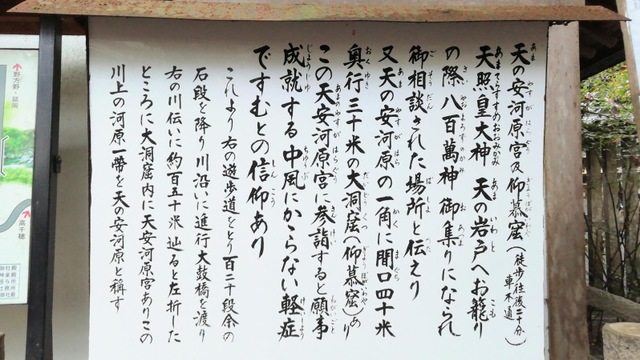 天の安河原宮及仰慕窟(徒歩往復三十分 車不通)
天照皇大神 天の岩戸へお籠り
の際 八百萬神 御集りになられ
御相談された場所と伝えり
又天の安河原の一角に間口四十米
奥行三十米の大洞窟(仰慕窟)あり
この天安河原宮に参詣すると願事
成就する中風にかゝらない軽症
ですむとの信仰あり
これより右の遊歩道をとり百二十段余の
石段を降り川沿いに進行大鼓橋を渡り
右の川伝いに約百五十米辿ると左折した
ところに大洞窟内に天安河原宮ありこの
川上の河原一帯を天の安河原と称す
高千穂